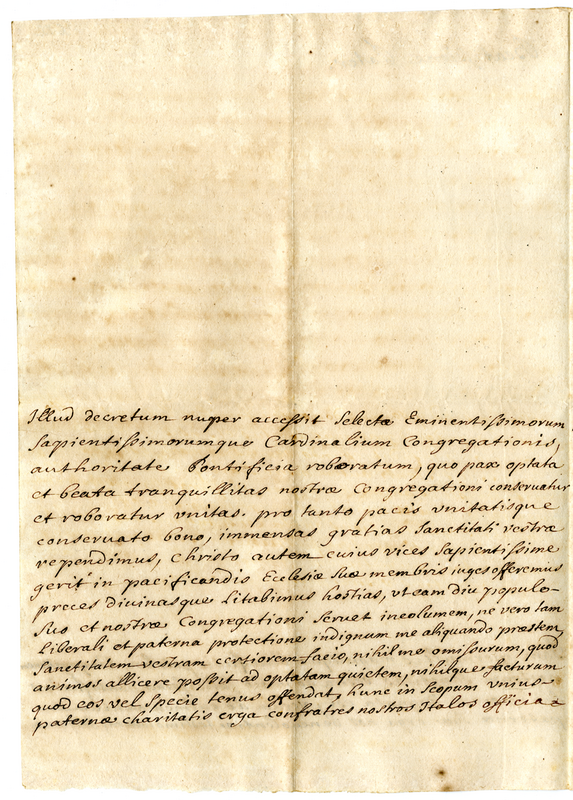 Illud decretum nuper accessit selectæ Eminentissimorum
sapientissimorumque Cardinalium Congregationis,
authoritate Pontificia roboratum, quo pax optata
et beata tranquillitas nostræ Congregationi conservatur
et roboratur unitas. pro tanto pacis vnitatisque
conservato bono, immensas gratias Sanctitati vestræ
rependimus, Christo autem cuius vices sapientissime
gerit in pacificandis Ecclesiæ suæ membris iuges offeremus
preces divinasque litabimus hostias, vt eam diu populo-
suo et nostræ Congregationi servet incolumem, ne vero tam
liberali et paterna protectione indignum me aliquando præstem,
Sanctitatem vestram certiorem facio, nihil me omissurum, quod
animos allicere possit ad optatam quietem, nihilque facturum
quod eos vel specie tenus offendat, hunc in scopum vnius
paternæ charitatis erga confratres nostros Italos officia